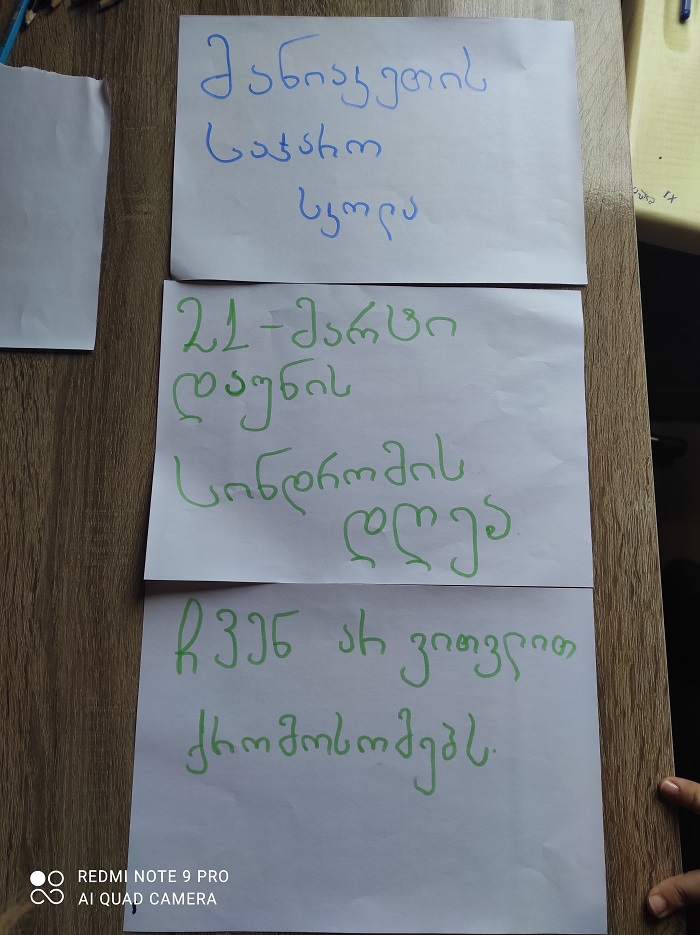 მანიაკეთის
საჯარო
სკოლა
21-მარტი
დაუნის
სინდრომის
დღეა
ჩვენ არ ვითვლით
ქრომოსომებს.
REDMI NOTE 9 PRO
AI QUAD CAMERA